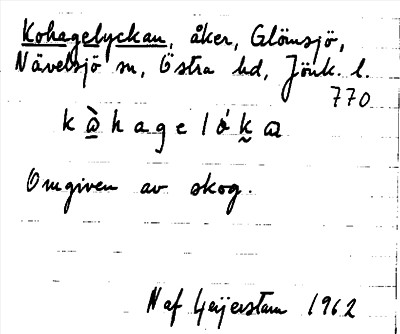 Kohagelyckan, åker, Glömsjö,
Nävelsjö sn, Östra hd, Jönk. l.
770
k à̱ h a g e l ó k̰ a
Omgiven av skog.
N af Geijerstam 1962